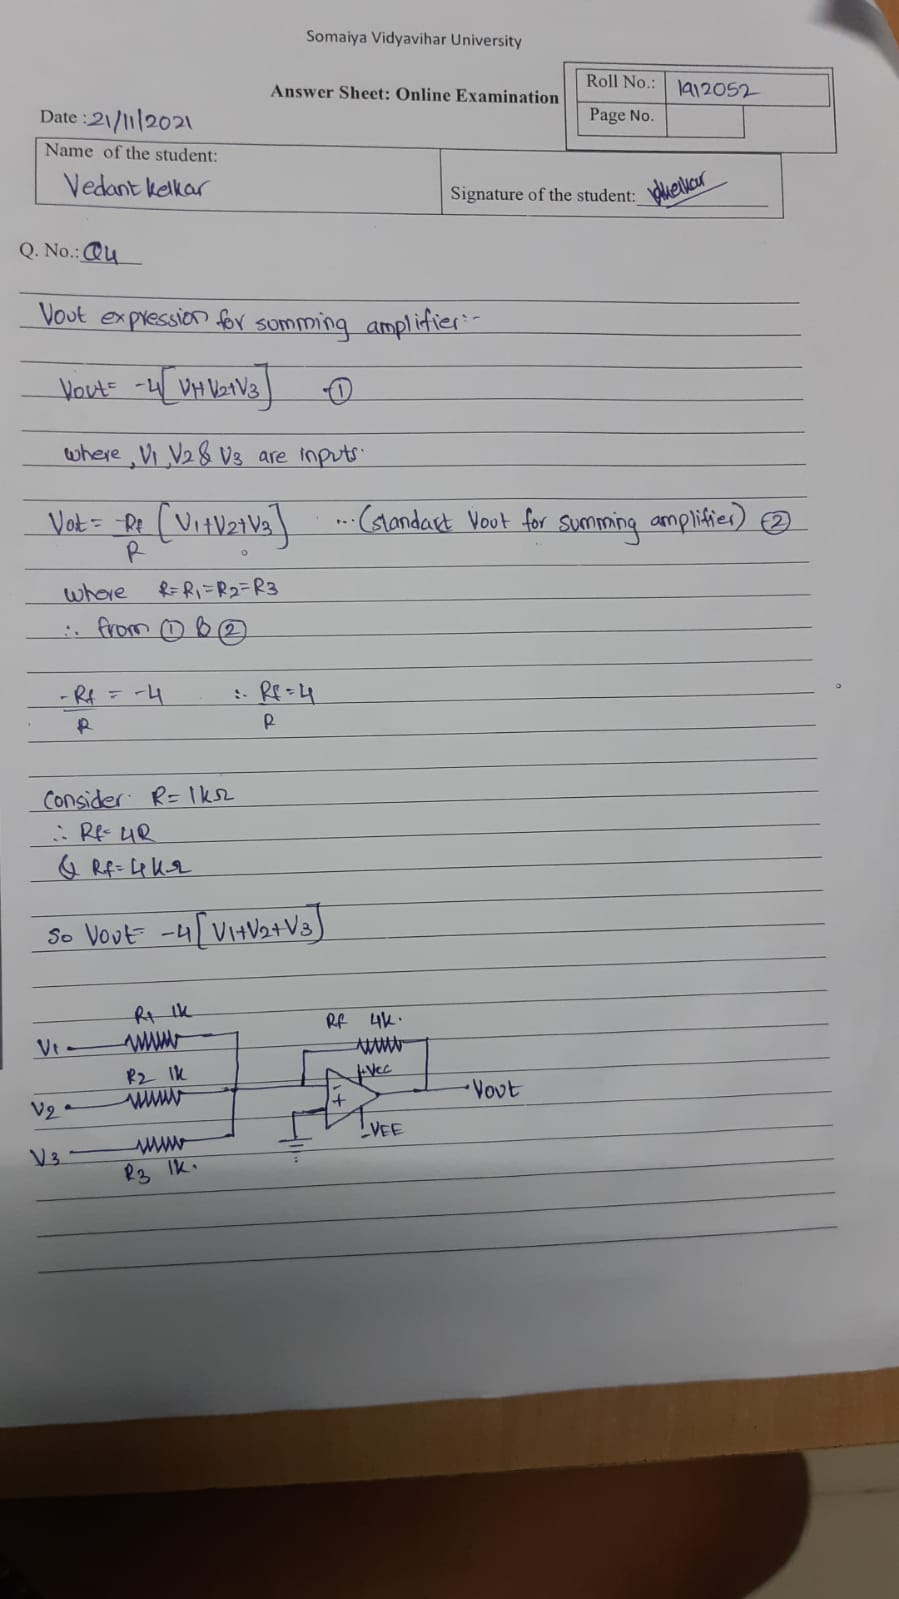 Somaiya Vidyavihar University
Answer Sheet: Online Examination
Roll No.: 1912052
Page No.
Date : 21/11/2021
Name of the student:
Vedant Kelkar
Signature of the student:
Q. No.: Q4
Vout expression for summing amplifier:-
Vout= -4[V1+V2+V3] -①
where, V1, V2 & V3 are inputs.
Vot= -Rf/R [V1+V2+V3] ...(standart Vout for summing amplifier) -②
where R=R1=R2=R3
∴ from ① & ②
-Rf/R = -4 ∴ Rf/R = 4
Consider R= 1kΩ
∴ Rf= 4R
& Rf= 4kΩ
So Vout= -4[V1+V2+V3]
R1 1k
Rf 4k.
V1
R2 1k
+Vcc
-
+
Vout
V2
-VEE
V3
R3 1k.